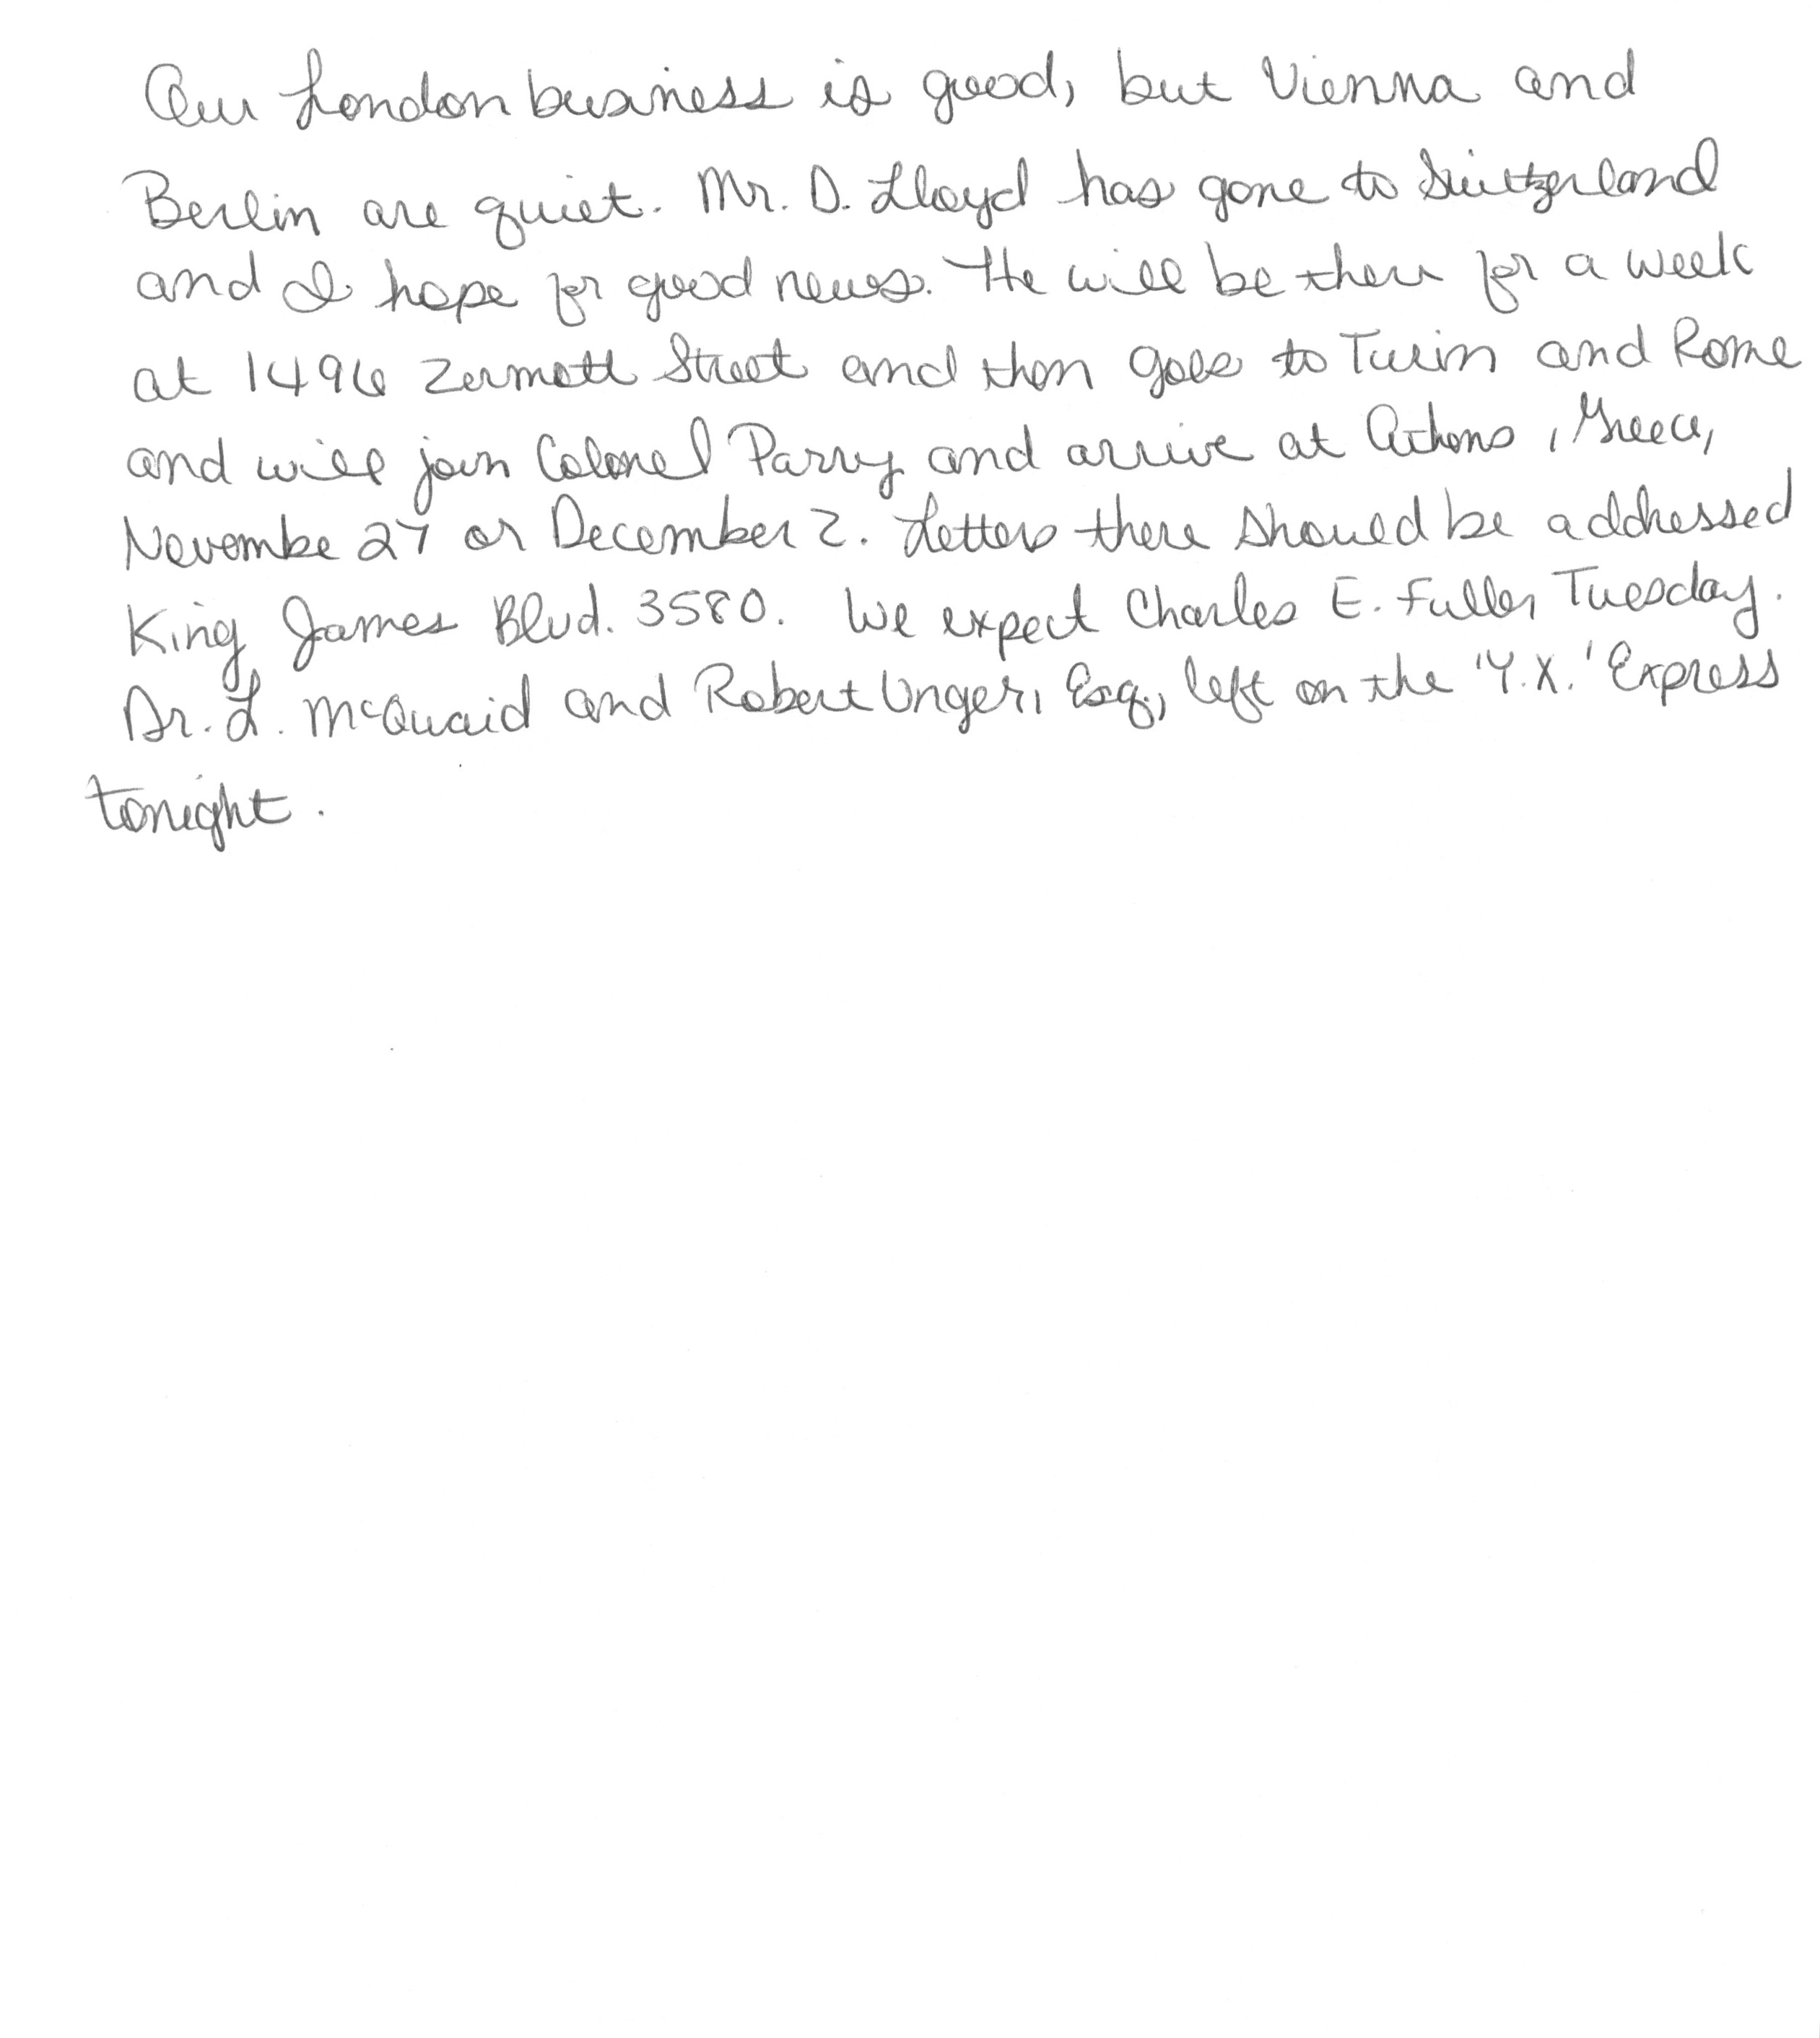 Our London business is good, but Vienna and
Berlin are quiet. Mr. D. Lloyd has gone to Switzerland
and I hope for good news. He will be there for a week
at 1496 Zermott Street and then goes to Turin and Rome
and will join Colonel Parry and arrive at Athens, Greece,
Novembe 27 or December 2. Letters there should be addressed
King James Blvd. 3580. We expect Charles E. Fuller Tuesday.
Dr. L. McQuaid and Robert Unger, Esq., left on the 'Y.X.' Express
tonight.